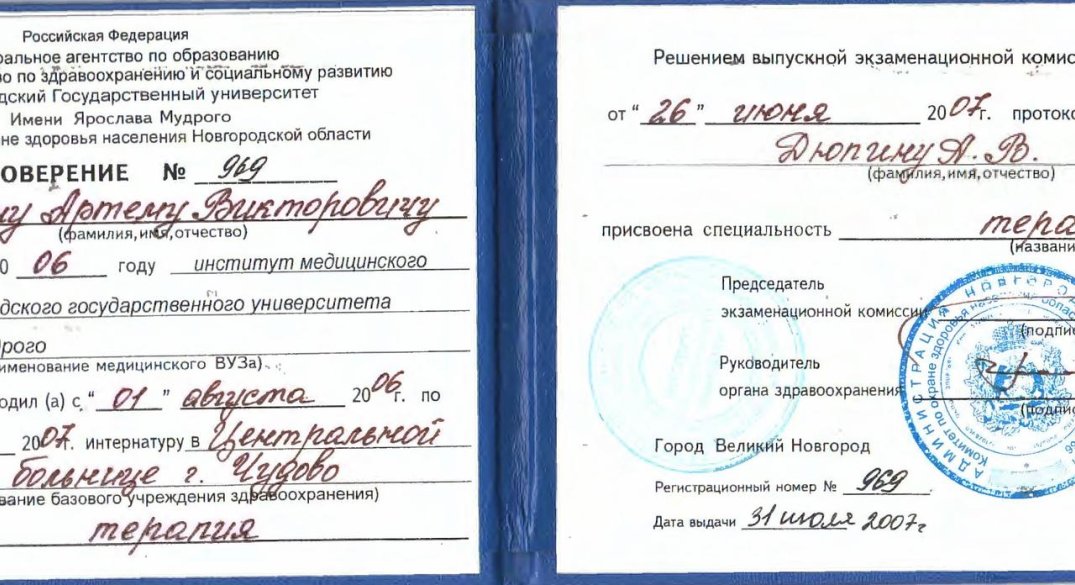 Российская Федерация
ральное агентство по образованию
во по здравоохранению и социальному развитию
дский Государственный университет
Имени Ярослава Мудрого
не здоровья населения Новгородской области
ОВЕРЕНИЕ № 969
ну Артему Викторовичу
(фамилия,имя,отчество)
0 06 году институт медицинского
дского государственного университета
дрого
именование медицинского ВУЗа)
одил (а) с " 01 " августа 2006г. по
2007г. интернатуру в Центральной
больнице г. Чудово
вание базового учреждения здравоохранения)
терапия
Решением выпускной экзаменационной комис
от " 26 " июня 2007г. протоко
Дюпину А. В.
(фамилия,имя,отчество)
присвоена специальность тера
(названи
Председатель
экзаменационной комиссии
(подпис
Руководитель
органа здравоохранения
(подпис
Город Великий Новгород
Регистрационный номер № 969
Дата выдачи 31 июля 2007г
АДМИНИСТРАЦИЯ НОВГОРОД
Комитет по охране здоровья населения